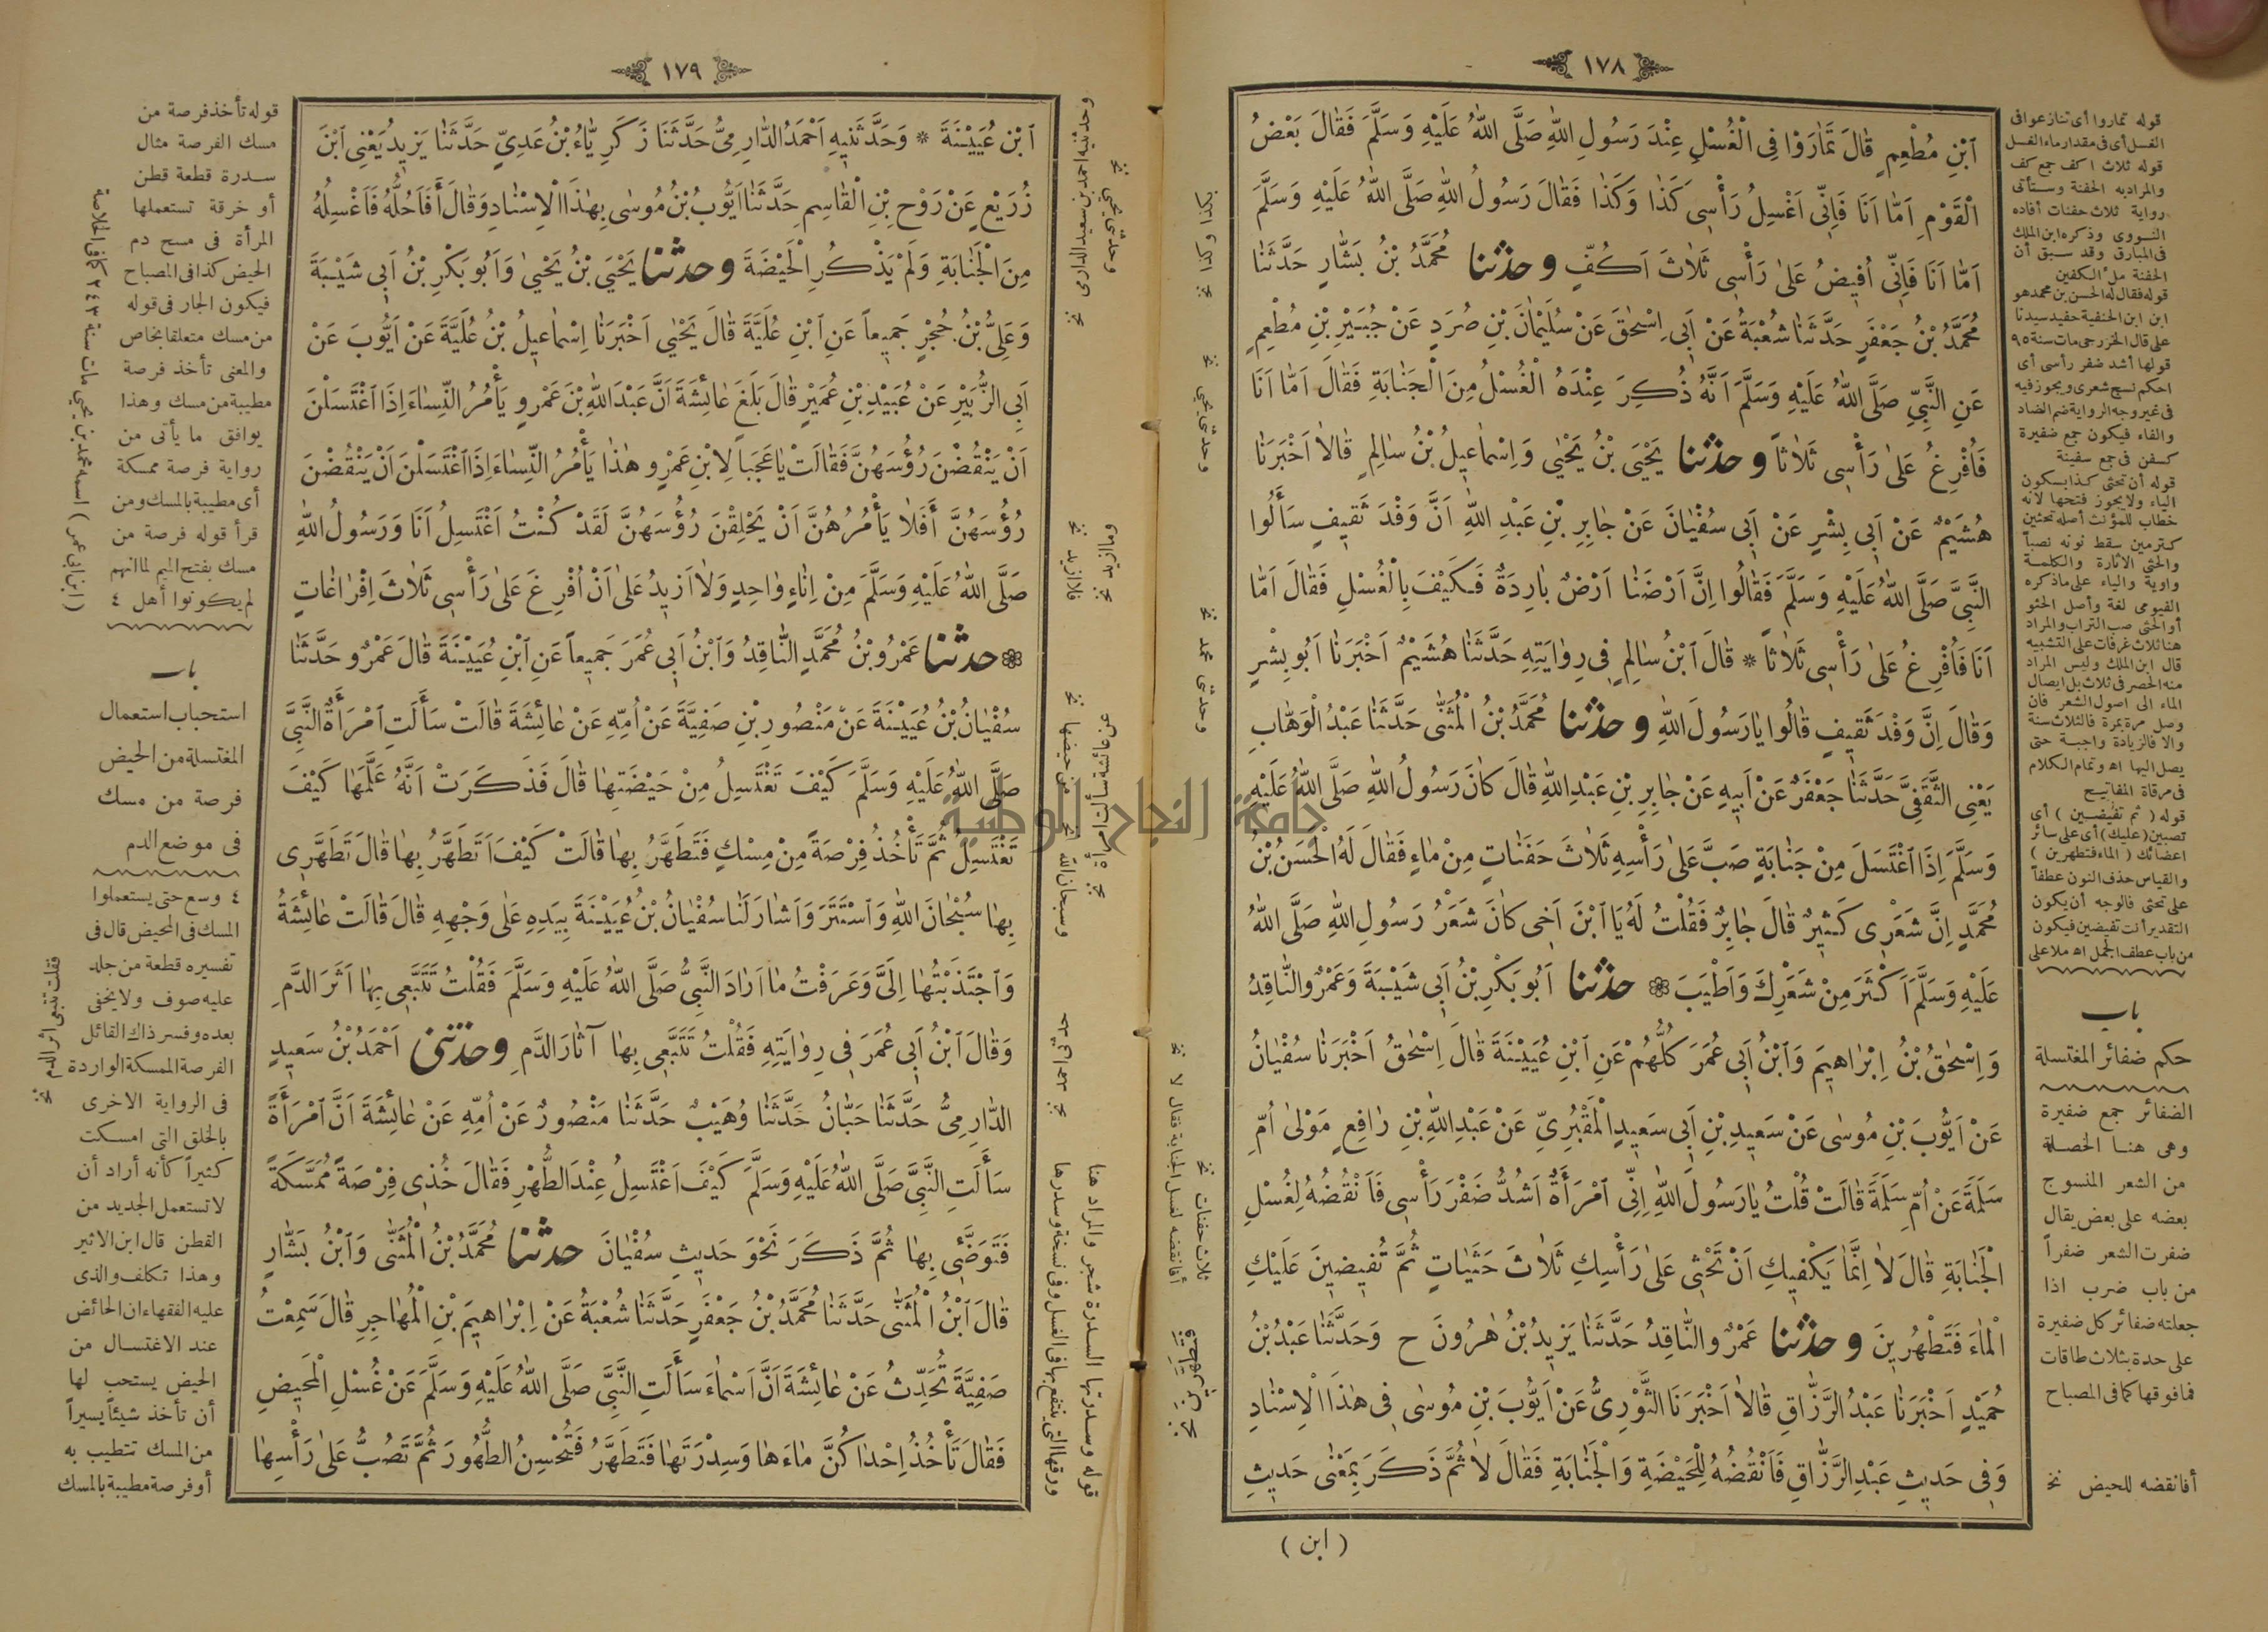 ١٧٨
اَبْنِ مُطْعِمٍ قَالَ تَمَارَوْا فِى الْغُسْلِ عِنْدَ رَسُولِ اللّٰهِ صَلَّى اللّٰهُ عَلَيْهِ وَسَلَّمَ فَقَالَ بَعْضُ
الْقَوْمِ اَمَّا اَنَا فَاِنِّى اَغْسِلُ رَأْسِى كَذَا وَكَذَا فَقَالَ رَسُولُ اللّٰهِ صَلَّى اللّٰهُ عَلَيْهِ وَسَلَّمَ
اَمَّا اَنَا فَاِنِّى اُفِيضُ عَلىٰ رَأْسِى ثَلَاثَ اَكُفٍّ وحدثنا مُحَمَّدُ بْنُ بَشَّارٍ حَدَّثَنَا
مُحَمَّدُ بْنُ جَعْفَرٍ حَدَّثَنَا شُعْبَةُ عَنْ اَبِى اِسْحٰقَ عَنْ سُلَيْمَانَ بْنِ صُرَدٍ عَنْ جُبَيْرِ بْنِ مُطْعِمٍ
عَنِ النَّبِىِّ صَلَّى اللّٰهُ عَلَيْهِ وَسَلَّمَ اَنَّهُ ذُكِرَ عِنْدَهُ الْغُسْلُ مِنَ الْجَنَابَةِ فَقَالَ اَمَّا اَنَا
فَاُفْرِغُ عَلىٰ رَأْسِى ثَلَاثاً وحدثنا يَحْيَى بْنُ يَحْيٰى وَاِسْمَاعِيلُ بْنُ سَالِمٍ قَالَا اَخْبَرَنَا
هُشَيْمٌ عَنْ اَبِى بِشْرٍ عَنْ اَبِى سُفْيَانَ عَنْ جَابِرِ بْنِ عَبْدِ اللّٰهِ اَنَّ وَفْدَ ثَقِيفٍ سَأَلُوا
النَّبِىَّ صَلَّى اللّٰهُ عَلَيْهِ وَسَلَّمَ فَقَالُوا اِنَّ اَرْضَنَا اَرْضٌ بَارِدَةٌ فَكَيْفَ بِالْغُسْلِ فَقَالَ اَمَّا
اَنَا فَاُفْرِغُ عَلىٰ رَأْسِى ثَلَاثاً * قَالَ اَبْنُ سَالِمٍ فِى رِوَايَتِهِ حَدَّثَنَا هُشَيْمٌ اَخْبَرَنَا اَبُو بِشْرٍ
وَقَالَ اِنَّ وَفْدَ ثَقِيفٍ قَالُوا يَا رَسُولَ اللّٰهِ وحدثنا مُحَمَّدُ بْنُ الْمُثَنّٰى حَدَّثَنَا عَبْدُ الْوَهَّابِ
يَعْنِى الثَّقَفِىَّ حَدَّثَنَا جَعْفَرٌ عَنْ اَبِيهِ عَنْ جَابِرِ بْنِ عَبْدِ اللّٰهِ قَالَ كَانَ رَسُولُ اللّٰهِ صَلَّى اللّٰهُ عَلَيْهِ
وَسَلَّمَ اِذَا اغْتَسَلَ مِنْ جَنَابَةٍ صَبَّ عَلىٰ رَأْسِهِ ثَلَاثَ حَفَنَاتٍ مِنْ مَاءٍ فَقَالَ لَهُ الْحَسَنُ بْنُ
مُحَمَّدٍ اِنَّ شَعْرِى كَثِيرٌ قَالَ جَابِرٌ فَقُلْتُ لَهُ يَا ابْنَ اَخِى كَانَ شَعْرُ رَسُولِ اللّٰهِ صَلَّى اللّٰهُ
عَلَيْهِ وَسَلَّمَ اَكْثَرَ مِنْ شَعْرِكَ وَاَطْيَبَ ❁ حدثنا اَبُو بَكْرِ بْنُ اَبِى شَيْبَةَ وَعَمْرٌو النَّاقِدُ
وَاِسْحٰقُ بْنُ اِبْرَاهِيمَ وَابْنُ اَبِى عُمَرَ كُلُّهُمْ عَنِ ابْنِ عُيَيْنَةَ قَالَ اِسْحٰقُ اَخْبَرَنَا سُفْيَانُ
عَنْ اَيُّوبَ بْنِ مُوسٰى عَنْ سَعِيدِ بْنِ اَبِى سَعِيدٍ الْمَقْبُرِىِّ عَنْ عَبْدِ اللّٰهِ بْنِ رَافِعٍ مَوْلىٰ اُمِّ
سَلَمَةَ عَنْ اُمِّ سَلَمَةَ قَالَتْ قُلْتُ يَا رَسُولَ اللّٰهِ اِنِّى امْرَأَةٌ اَشُدُّ ضَفْرَ رَأْسِى فَاَنْقُضُهُ لِغُسْلِ
الْجَنَابَةِ قَالَ لَا اِنَّمَا يَكْفِيكِ اَنْ تَحْثِى عَلىٰ رَأْسِكِ ثَلَاثَ حَثَيَاتٍ ثُمَّ تُفِيضِينَ عَلَيْكِ
الْمَاءَ فَتَطْهُرِينَ وحدثنا عَمْرٌو النَّاقِدُ حَدَّثَنَا يَزِيدُ بْنُ هٰرُونَ ح وَحَدَّثَنَا عَبْدُ بْنُ
حُمَيْدٍ اَخْبَرَنَا عَبْدُ الرَّزَّاقِ قَالَا اَخْبَرَنَا الثَّوْرِىُّ عَنْ اَيُّوبَ بْنِ مُوسٰى فِى هٰذَا الْاِسْنَادِ
وَفِى حَدِيثِ عَبْدِ الرَّزَّاقِ فَاَنْقُضُهُ لِلْحَيْضَةِ وَالْجَنَابَةِ فَقَالَ لَا ثُمَّ ذَكَرَ بِمَعْنٰى حَدِيثِ
( ابن )
قوله تماروا أى تنازعوا فى
الغسل أى فى مقدار ماء الغسل
قوله ثلاث اكف جمع كف
والمراد به الحفنة وستأتى
رواية ثلاث حفنات أفاده
النووى وذكره ابن الملك
فى المبارق وقد سبق أن
الحفنة ملء الكفين
قوله فقال له الحسن بن محمد هو
ابن ابن الحنفية حفيد سيدنا
على قال الخزرجى مات سنة ٩٥
قولها أشد ضفر رأسى أى
احكم نسج شعرى ويجوز فيه
فى غير وجه الرواية ضم الضاد
والفاء فيكون جمع ضفيرة
كسفن فى جمع سفينة
قوله أن تحثى كذا بسكون
الياء ولا يجوز فتحها لانه
خطاب للمؤنث أصله تحثين
كترمين سقط نونه نصباً
والحثى الاثارة والكلمة
واوية والياء على ما ذكره
الفيومى لغة وأصل الحثو
أو الحثى صب التراب والمراد
هنا ثلاث غرفات على التشبيه
قال ابن الملك وليس المراد
منه الحصر فى ثلاث بل ايصال
الماء الى اصول الشعر فان
وصل مرة بمرة فالثلاث سنة
والا فالزيادة واجبة حتى
يصل اليها اه وتمام الكلام
فى مرقاة المفاتيح
قوله ( ثم تفيضين ) أى
تصبين (عليك) أى على سائر
اعضائك ( الماء فتطهرين )
والقياس حذف النون عطفاً
على تحثى فالوجه أن يكون
التقدير أنت تفيضين فيكون
من باب عطف الجمل اه ملا على
باب
حكم ضفائر المغتسلة
الضفائر جمع ضفيرة
وهى هنا الخصلة
من الشعر المنسوج
بعضه على بعض يقال
ضفرت الشعر ضفراً
من باب ضرب اذا
جعلته ضفائر كل ضفيرة
على حدة بثلاث طاقات
فما فوقها كما فى المصباح
أفانقضه للحيض نخ
بكذا وكذا نخ
وحدثنى يحيى نخ
وحدثنى محمد نخ
أفانقضه لغسل الجنابة فقال لا نخ
ثلاث حفنات نخ
١٧٩
اَبْنِ عُيَيْنَةَ * وَحَدَّثَنِيهِ اَحْمَدُ الدَّارِمِىُّ حَدَّثَنَا زَكَرِيَّاءُ بْنُ عَدِىٍّ حَدَّثَنَا يَزِيدُ يَعْنِى ابْنَ
زُرَيْعٍ عَنْ رَوْحِ بْنِ الْقَاسِمِ حَدَّثَنَا اَيُّوبُ بْنُ مُوسٰى بِهٰذَا الْاِسْنَادِ وَقَالَ أَفَاَحُلُّهُ فَاَغْسِلُهُ
مِنَ الْجَنَابَةِ وَلَمْ يَذْكُرِ الْحَيْضَةَ وحدثنا يَحْيَى بْنُ يَحْيىٰ وَاَبُو بَكْرِ بْنُ اَبِى شَيْبَةَ
وَعَلِىُّ بْنُ حُجْرٍ جَمِيعاً عَنِ ابْنِ عُلَيَّةَ قَالَ يَحْيٰى اَخْبَرَنَا اِسْمَاعِيلُ بْنُ عُلَيَّةَ عَنْ اَيُّوبَ عَنْ
اَبِى الزُّبَيْرِ عَنْ عُبَيْدِ بْنِ عُمَيْرٍ قَالَ بَلَغَ عَائِشَةَ اَنَّ عَبْدَ اللّٰهِ بْنَ عَمْرٍو يَأْمُرُ النِّسَاءَ اِذَا اغْتَسَلْنَ
اَنْ يَنْقُضْنَ رُؤُسَهُنَّ فَقَالَتْ يَا عَجَباً لِابْنِ عَمْرٍو هٰذَا يَأْمُرُ النِّسَاءَ اِذَا اغْتَسَلْنَ اَنْ يَنْقُضْنَ
رُؤُسَهُنَّ أَفَلَا يَأْمُرُهُنَّ اَنْ يَحْلِقْنَ رُؤُسَهُنَّ لَقَدْ كُنْتُ اَغْتَسِلُ اَنَا وَرَسُولُ اللّٰهِ
صَلَّى اللّٰهُ عَلَيْهِ وَسَلَّمَ مِنْ اِنَاءٍ وَاحِدٍ وَلَا اَزِيدُ عَلىٰ اَنْ اُفْرِغَ عَلىٰ رَأْسِى ثَلَاثَ اِفْرَاغَاتٍ
❁ حدثنا عَمْرُو بْنُ مُحَمَّدٍ النَّاقِدُ وَابْنُ اَبِى عُمَرَ جَمِيعاً عَنِ ابْنِ عُيَيْنَةَ قَالَ عَمْرٌو حَدَّثَنَا
سُفْيَانُ بْنُ عُيَيْنَةَ عَنْ مَنْصُورِ بْنِ صَفِيَّةَ عَنْ اُمِّهِ عَنْ عَائِشَةَ قَالَتْ سَأَلَتِ امْرَأَةٌ النَّبِىَّ
صَلَّى اللّٰهُ عَلَيْهِ وَسَلَّمَ كَيْفَ تَغْتَسِلُ مِنْ حَيْضَتِهَا قَالَ فَذَكَرَتْ اَنَّهُ عَلَّمَهَا كَيْفَ
تَغْتَسِلُ ثُمَّ تَأْخُذُ فِرْصَةً مِنْ مِسْكٍ فَتَطَهَّرُ بِهَا قَالَتْ كَيْفَ اَتَطَهَّرُ بِهَا قَالَ تَطَهَّرِى
بِهَا سُبْحَانَ اللّٰهِ وَاسْتَتَرَ وَاَشَارَ لَنَا سُفْيَانُ بْنُ عُيَيْنَةَ بِيَدِهِ عَلىٰ وَجْهِهِ قَالَ قَالَتْ عَائِشَةُ
وَاجْتَذَبْتُهَا اِلَىَّ وَعَرَفْتُ مَا اَرَادَ النَّبِىُّ صَلَّى اللّٰهُ عَلَيْهِ وَسَلَّمَ فَقُلْتُ تَتَبَّعِى بِهَا اَثَرَ الدَّمِ
وَقَالَ ابْنُ اَبِى عُمَرَ فِى رِوَايَتِهِ فَقُلْتُ تَتَبَّعِى بِهَا آثَارَ الدَّمِ وحدثنى اَحْمَدُ بْنُ سَعِيدٍ
الدَّارِمِىُّ حَدَّثَنَا حَبَّانُ حَدَّثَنَا وُهَيْبٌ حَدَّثَنَا مَنْصُورٌ عَنْ اُمِّهِ عَنْ عَائِشَةَ اَنَّ امْرَأَةً
سَأَلَتِ النَّبِىَّ صَلَّى اللّٰهُ عَلَيْهِ وَسَلَّمَ كَيْفَ اَغْتَسِلُ عِنْدَ الطُّهْرِ فَقَالَ خُذِى فِرْصَةً مُمَسَّكَةً
فَتَوَضَّئِى بِهَا ثُمَّ ذَكَرَ نَحْوَ حَدِيثِ سُفْيَانَ حدثنا مُحَمَّدُ بْنُ الْمُثَنّٰى وَابْنُ بَشَّارٍ
قَالَ ابْنُ الْمُثَنّٰى حَدَّثَنَا مُحَمَّدُ بْنُ جَعْفَرٍ حَدَّثَنَا شُعْبَةُ عَنْ اِبْرَاهِيمَ بْنِ الْمُهَاجِرِ قَالَ سَمِعْتُ
صَفِيَّةَ تُحَدِّثُ عَنْ عَائِشَةَ اَنَّ اَسْمَاءَ سَأَلَتِ النَّبِىَّ صَلَّى اللّٰهُ عَلَيْهِ وَسَلَّمَ عَنْ غُسْلِ الْمَحِيضِ
فَقَالَ تَأْخُذُ اِحْدَاكُنَّ مَاءَهَا وَسِدْرَتَهَا فَتَطَهَّرُ فَتُحْسِنُ الطُّهُورَ ثُمَّ تَصُبُّ عَلىٰ رَأْسِهَا
وحدثنيه احمد بن سعيد الدارمى نخ
وحدثنى يحيى نخ
وما ازيد نخ
فلا ازيد نخ
عن عائشة سألت امرأة نخ
من حيضها نخ
وسبحان الله نخ
قوله وسدرتها السدرة شجر والمراد هنا
ورقها التى ينتفع بها فى الغسل وفى نسخة وسدرها
قوله تأخذ فرصة من
مسك الفرصة مثال
سدرة قطعة قطن
أو خرقة تستعملها
المرأة فى مسح دم
الحيض كذا فى المصباح
فيكون الجار فى قوله
من مسك متعلقا بخاص
والمعنى تأخذ فرصة
مطيبة من مسك وهذا
يوافق ما يأتى من
رواية فرصة ممسكة
أى مطيبة بالمسك ومن
قرأ قوله فرصة من
مسك بفتح الميم لما انهم
لم يكونوا أهل ٤
باب
استحباب استعمال
المغتسلة من الحيض
فرصة من مسك
فى موضع الدم
٤ وسع حتى يستعملوا
المسك فى المحيض قال فى
تفسيره قطعة من جلد
عليه صوف ولا يخفى
بعده وفسر ذاك القائل
الفرصة الممسكة الواردة
فى الرواية الاخرى
بالخلق التى امسكت
كثيراً كأنه أراد أن
لا تستعمل الجديد من
القطن قال ابن الاثير
وهذا تكلف والذى
عليه الفقهاء ان الحائض
عند الاغتسال من
الحيض يستحب لها
أن تأخذ شيئاً يسيراً
من المسك تتطيب به
أو فرصة مطيبة بالمسك
(ابن ابى عمر) اسمه محمد بن يحيى مات سنة ٢٤٣ كما فى الخلاصة
فقلت تتبعى اثر الدم نخ
جامعة النجاح الوطنية